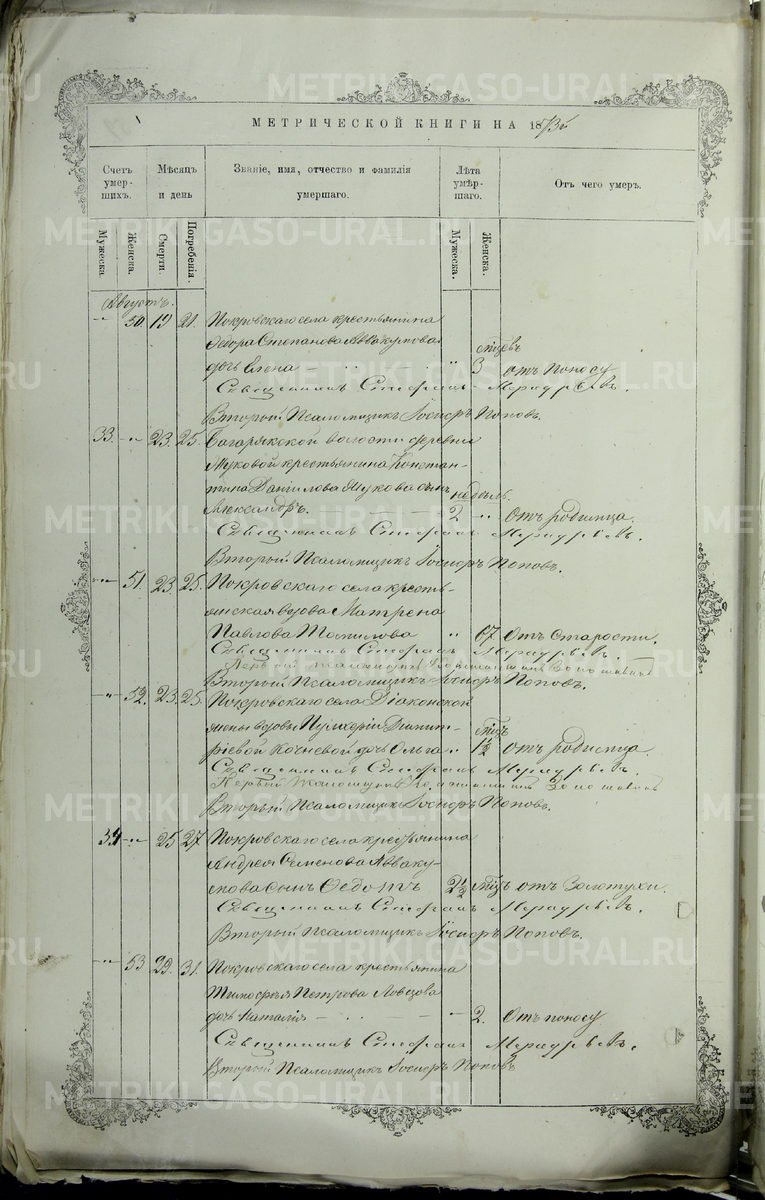 МЕТРИЧЕСКОЙ КНИГИ НА 187
Счетъ умер-шихъ. Мѣсяцъ и день Званіе, имя, отчество и фамилія умершаго. Лѣта умер-шаго. Отъ чего умеръ.
Мужеска. Женска. Смерти. Погребенія. Мужеска. Женска.
Августъ.
50 19 21. Покровскаго села крестьянина
Егора Степанова Аввакумова
дочь Елена " 3 отъ поносу
Священникъ Стефанъ
Вторый Псаломщикъ Іосифъ Поповъ.
33. " 23. 25. Багарякской волости деревни
крестьянина Констан-
тина Данилова сынъ недѣль.
Александръ. 2 " Отъ родимца.
Священникъ Стефанъ
Вторый Псаломщикъ Іосифъ Поповъ.
" 51. 23 25. Покровскаго села кресть-
янская вдова Матрена
Павлова " 67 Отъ старости.
Священникъ Стефанъ
Вторый Псаломщикъ Іосифъ Поповъ.
" 52. 23. 25. Покровскаго села Діаконской
вдовы Пульхеріи Димит-
ріевой Кочневой дочь Ольга " отъ родимца.
Священникъ Стефанъ
Первый Псаломщикъ
Вторый Псаломщикъ Іосифъ Поповъ.
34 " 25 27 Покровскаго села крестьянина
Андрея Семенова Авваку-
мова сынъ Ѳедотъ отъ золотухи.
Священникъ Стефанъ
Вторый Псаломщикъ Іосифъ Поповъ.
" 53 29. 31. Покровскаго села крестьянина
Тимофея Петрова Ловцова
дочь Наталія " 2. Отъ поносу
Священникъ Стефанъ
Вторый Псаломщикъ Іосифъ Поповъ
METRIKI.GASO-URAL.RU